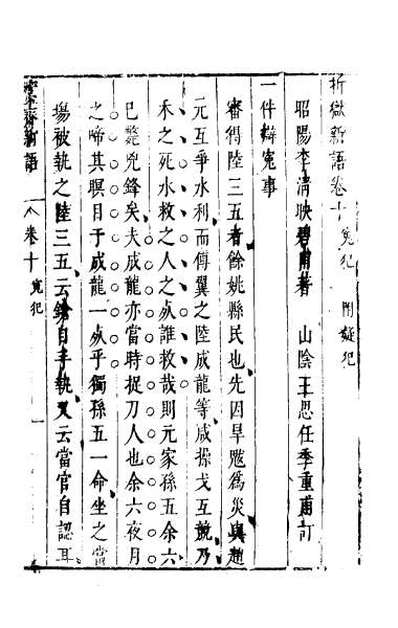 折獄新語卷十 冤犯 附疑犯
昭陽李清映碧甫著 山陰王思任季重甫訂
一件辯冤事
審得陸三五者餘姚縣民也先因旱魃爲災與趙
元互爭水利而傅翼之陸成龍等咸操戈互競乃
禾之死水救之人之死誰救哉則元家孫五余六
已斃兇鋒矣夫成龍亦當時捉刀人也余六夜月
之啼其瞑目于成龍一死乎獨孫五一命坐之當
塲被執之陸三五云鎗自手執又云當官自認耳
折獄新語 卷十 冤犯 一